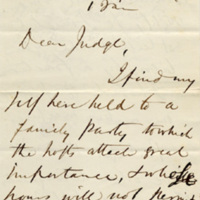 1 Jan
Dear Judge,
I find my
self here held to a
family party to which
the hosts attach great
importance, & whose
hours will not permit